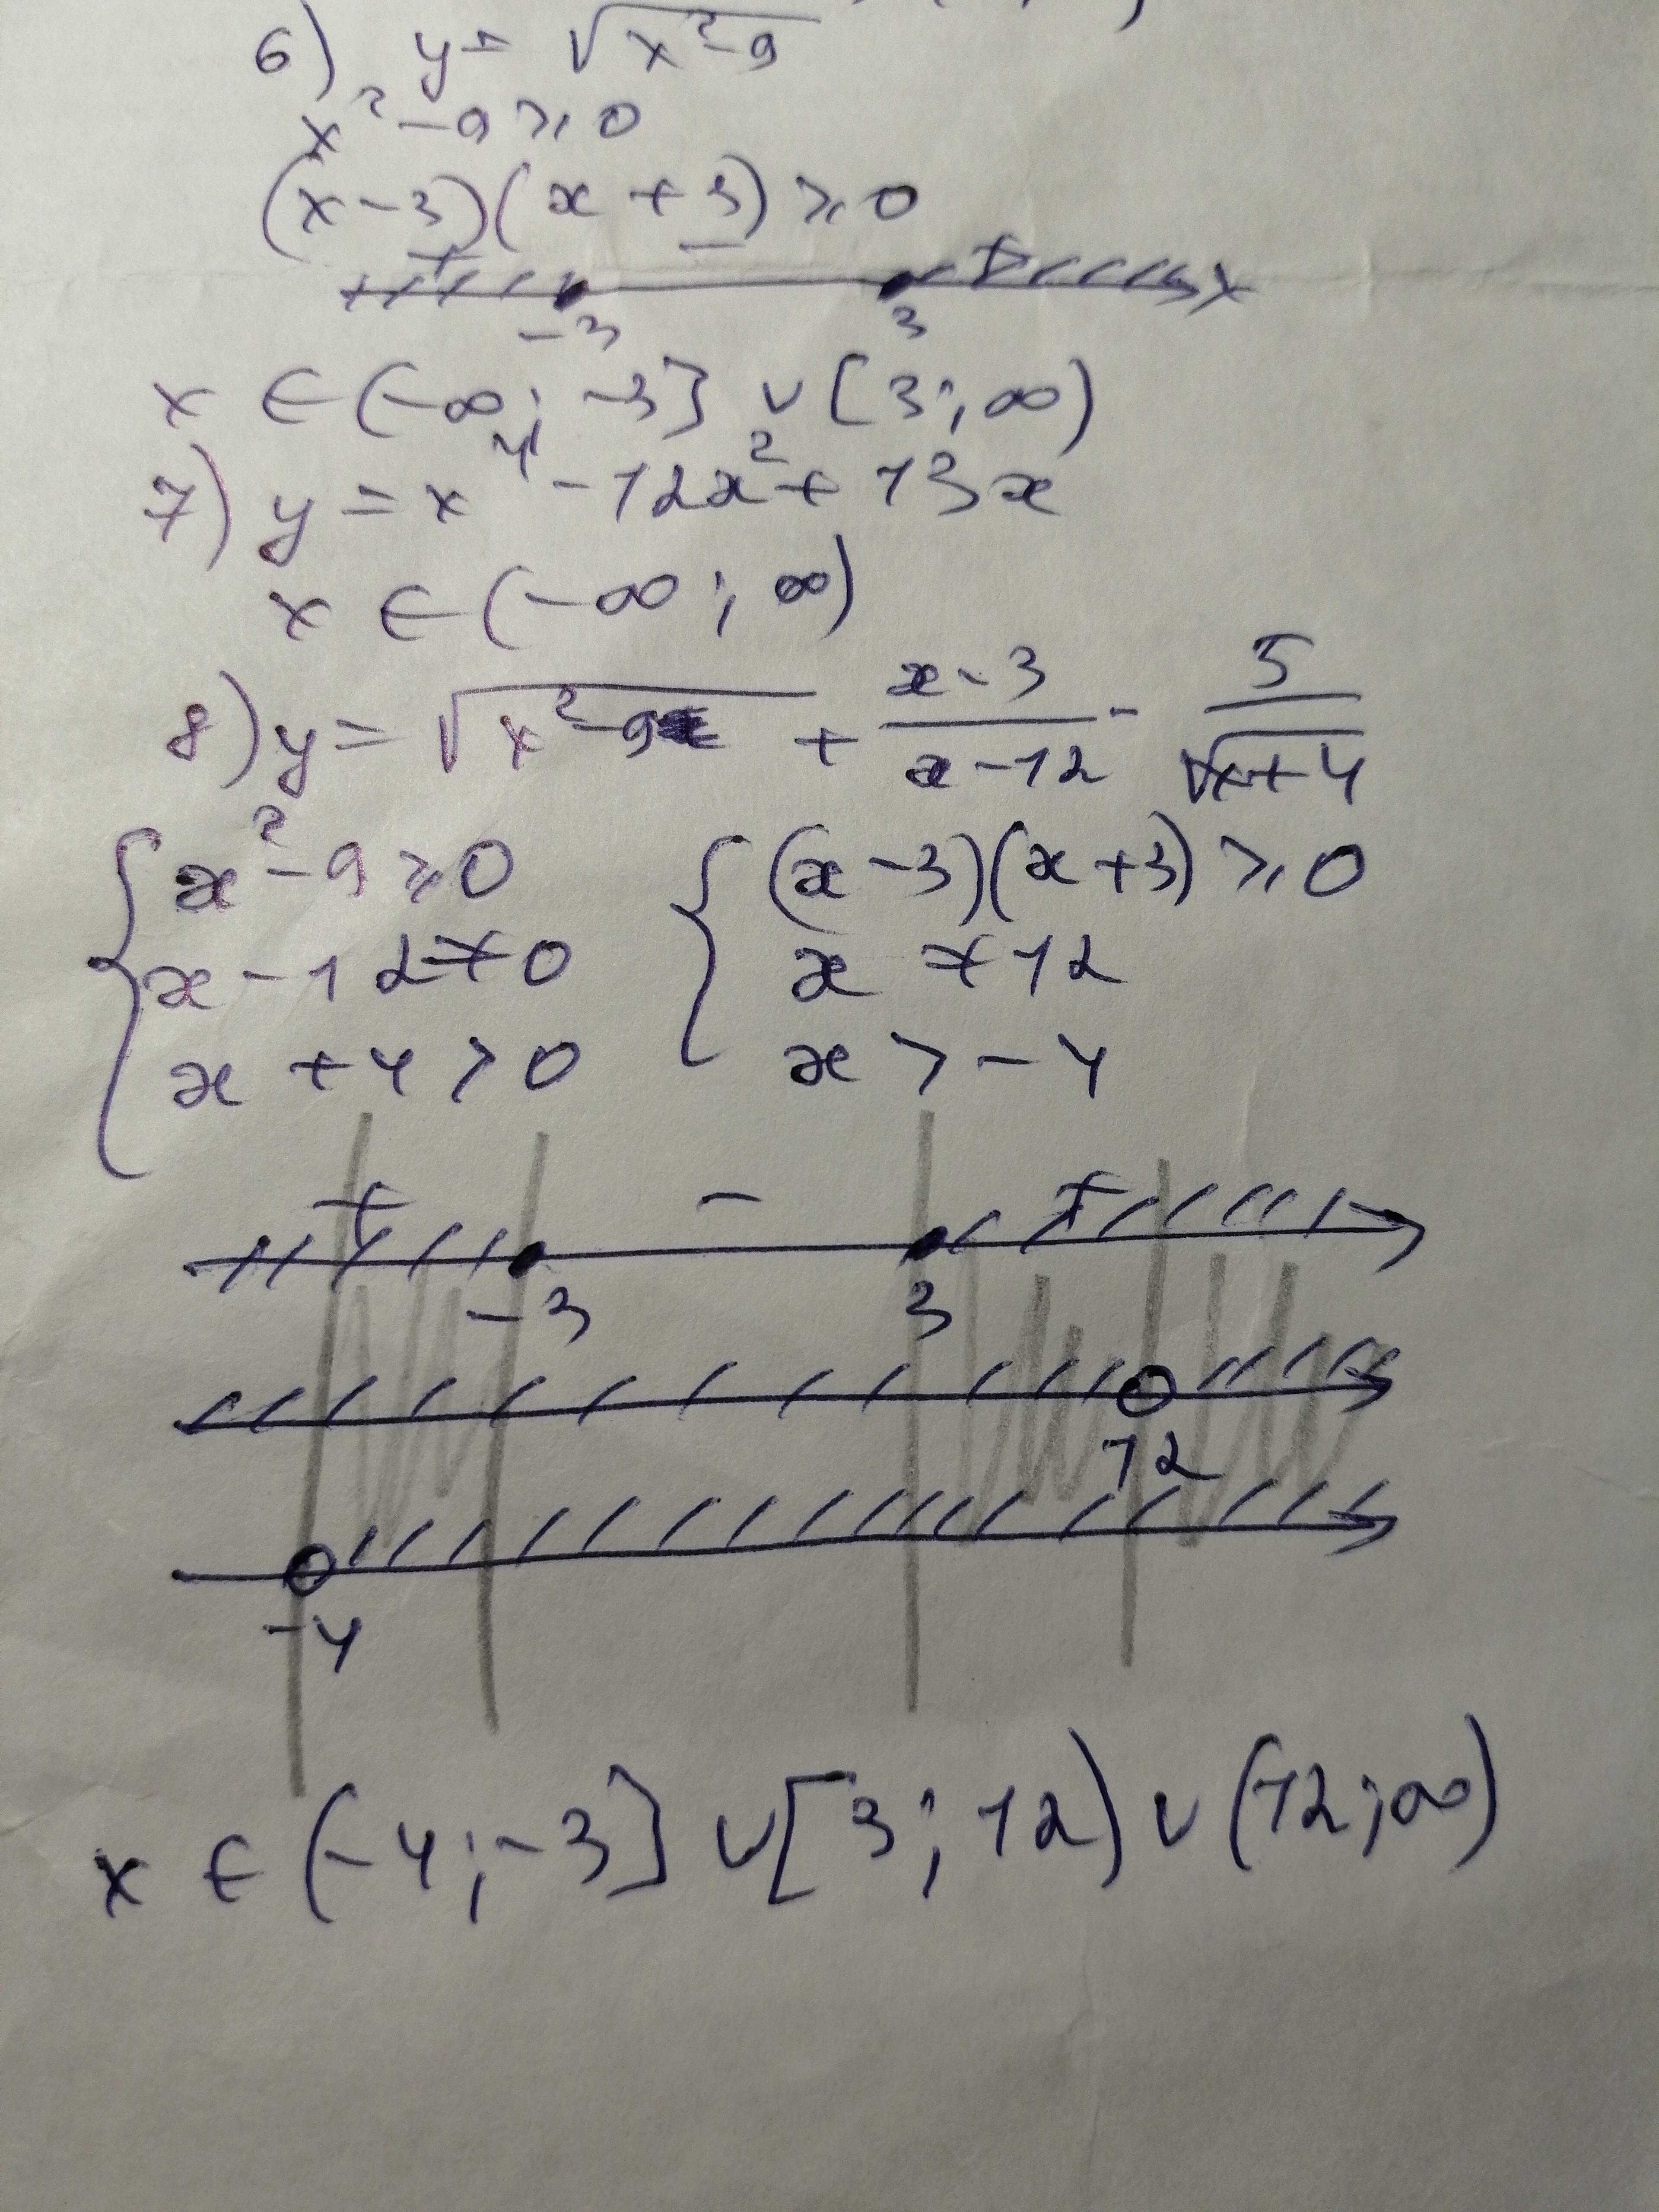 6) y = √(x²-9)
x²-9 ⩾ 0
(x-3)(x+3) ⩾ 0
+ - +
-3 3 x
x ∈ (-∞; -3] ∪ [3; ∞)
7) y = x⁴ - 12x² + 13x
x ∈ (-∞; ∞)
8) y = √(x²-9) + (x-3)/(x-12) - 5/√(x+4)
{ x²-9 ⩾ 0 { (x-3)(x+3) ⩾ 0
x-12 ≠ 0 x ≠ 12
x+4 > 0 x > -4
+ - +
-3 3
12
-4
x ∈ (-4; -3] ∪ [3; 12) ∪ (12; ∞)